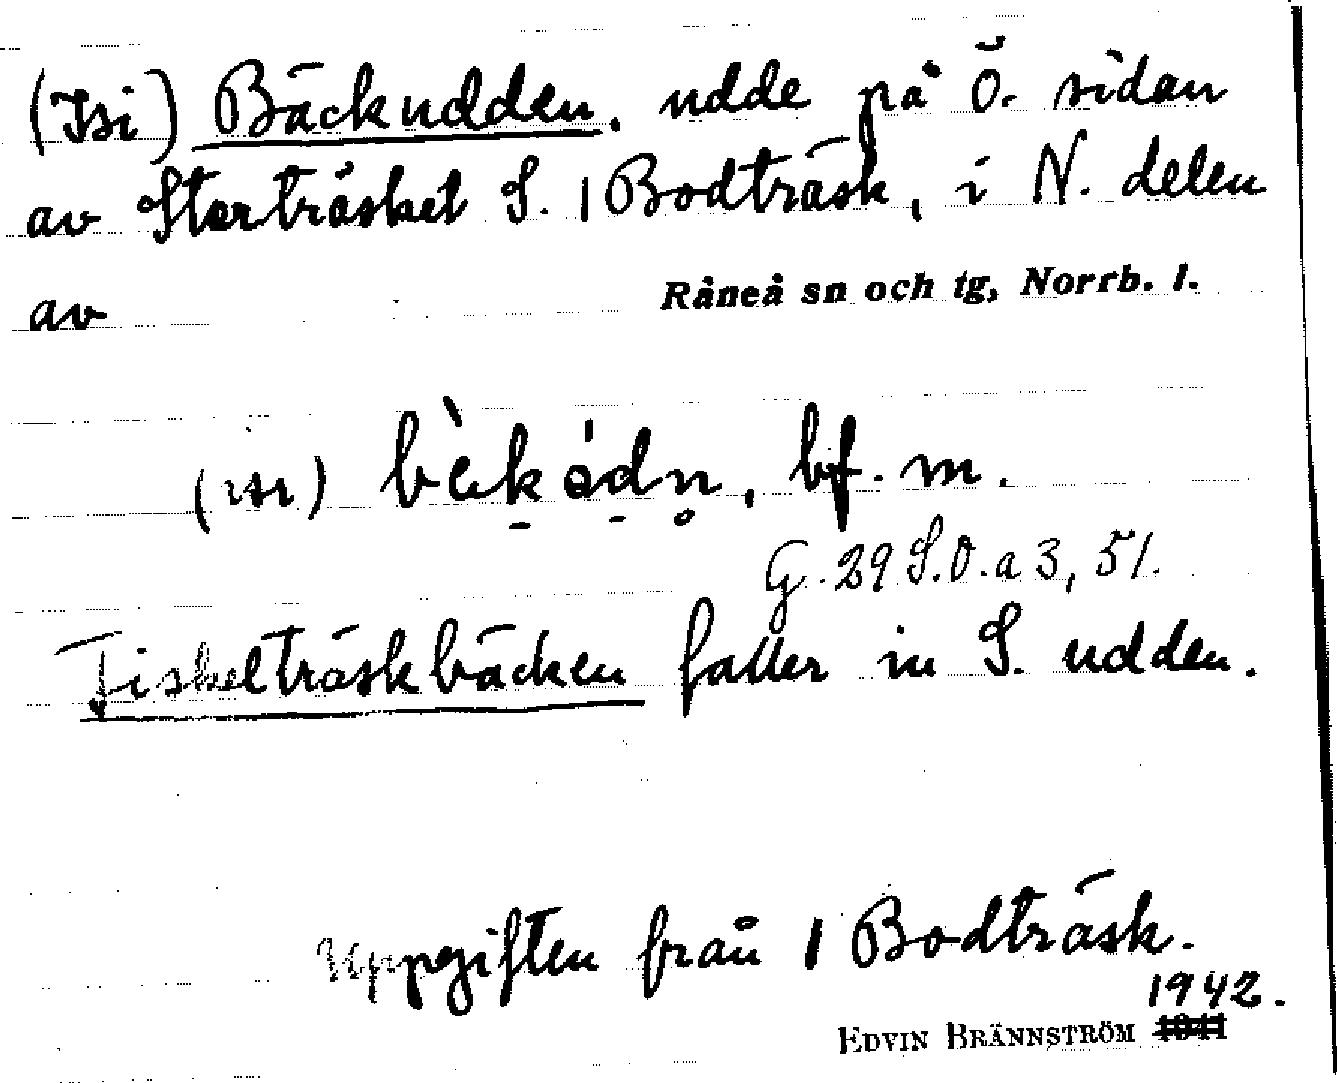 (Isi) Bäckudden. udde på Ö. sidan
av Storträsket S. 1 Bodträsk, i N. delen
av Råneå sn och tg, Norrb. l.
bf. m.
G. 29 S.O. a 3, 51.
Fiskelträskbäcken faller in S. udden.
Uppgiften från 1 Bodträsk.
1942.
EDVIN BRÄNNSTRÖM 1941